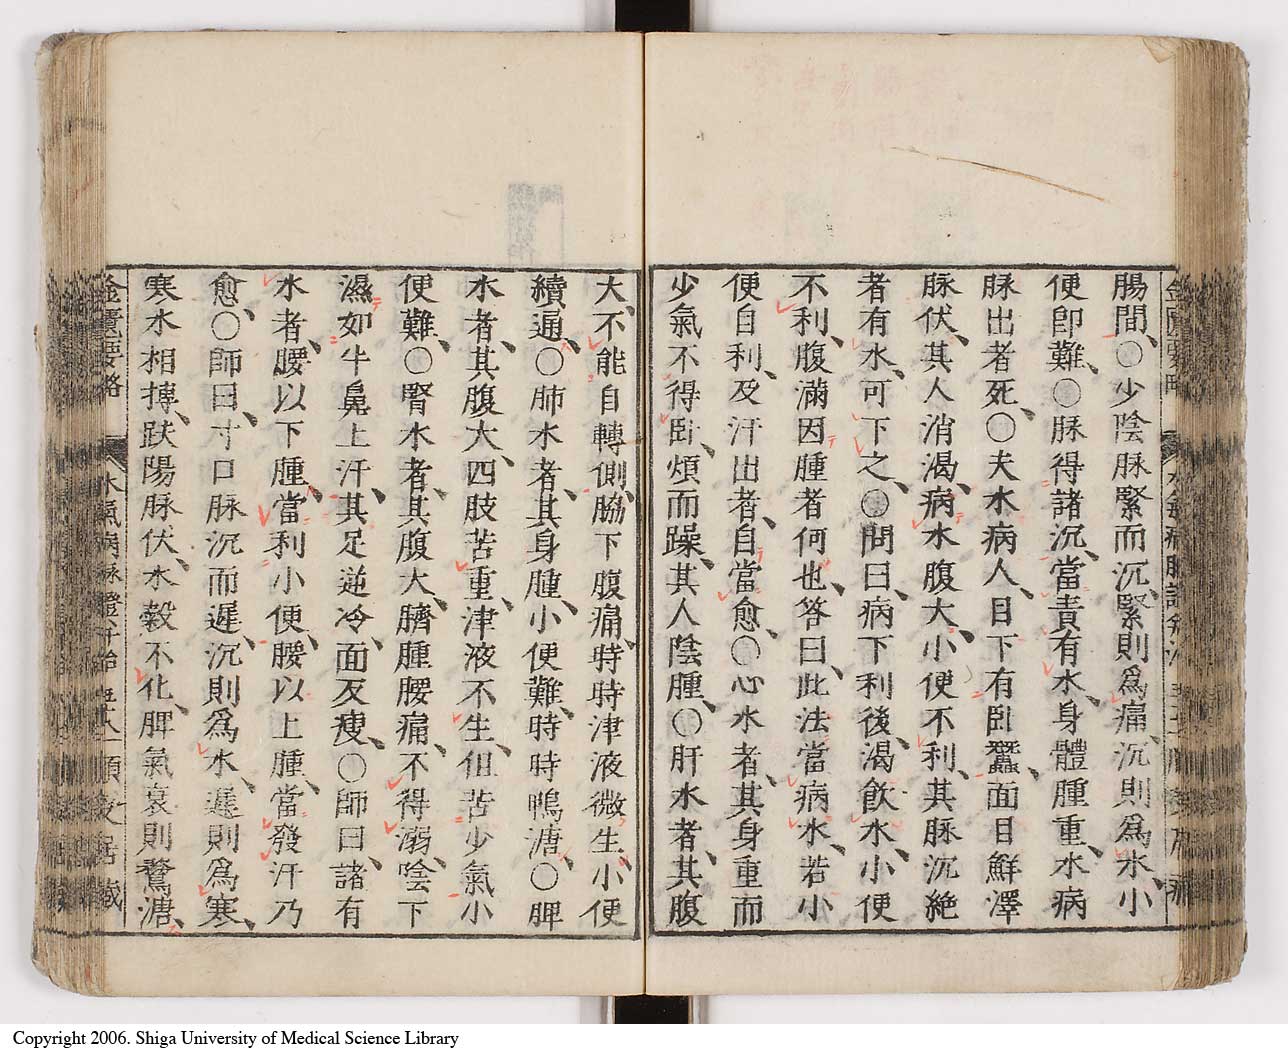 腸間、○少陰脉緊而沉、緊則爲痛、沉則爲水、小
便卽難、○脉得諸沉、當責有水、身體腫重、水病
脉出者死、○夫水病人、目下有卧蠶、面目鮮澤
脉伏、其人消渴、病水腹大、小便不利、其脉沉絕
者有水、可下之、○問曰、病下利後、渴飲水、小便
不利、腹滿因腫者何也、答曰、此法當病水、若小
便自利、及汗出者、自當愈、○心水者、其身重而
少氣不得卧、煩而躁、其人陰腫、○肝水者、其腹
大、不能自轉側、脇下腹痛、時時津液微生、小便
續通、○肺水者、其身腫、小便難、時時鴨溏、○脾
水者、其腹大、四肢苦重、津液不生、但苦少氣小
便難、○腎水者、其腹大、臍腫腰痛、不得溺、陰下
濕如牛鼻上汗、其足逆冷、面反瘦、○師曰、諸有
水者、腰以下腫、當利小便、腰以上腫、當發汗乃
愈、○師曰、寸口脉沉而遲、沉則爲水、遲則爲寒、
寒水相搏、趺陽脉伏、水穀不化、脾氣衰則鶩溏、
金匱要略
水氣病脉證并治
Copyright 2006. Shiga University of Medical Science Library